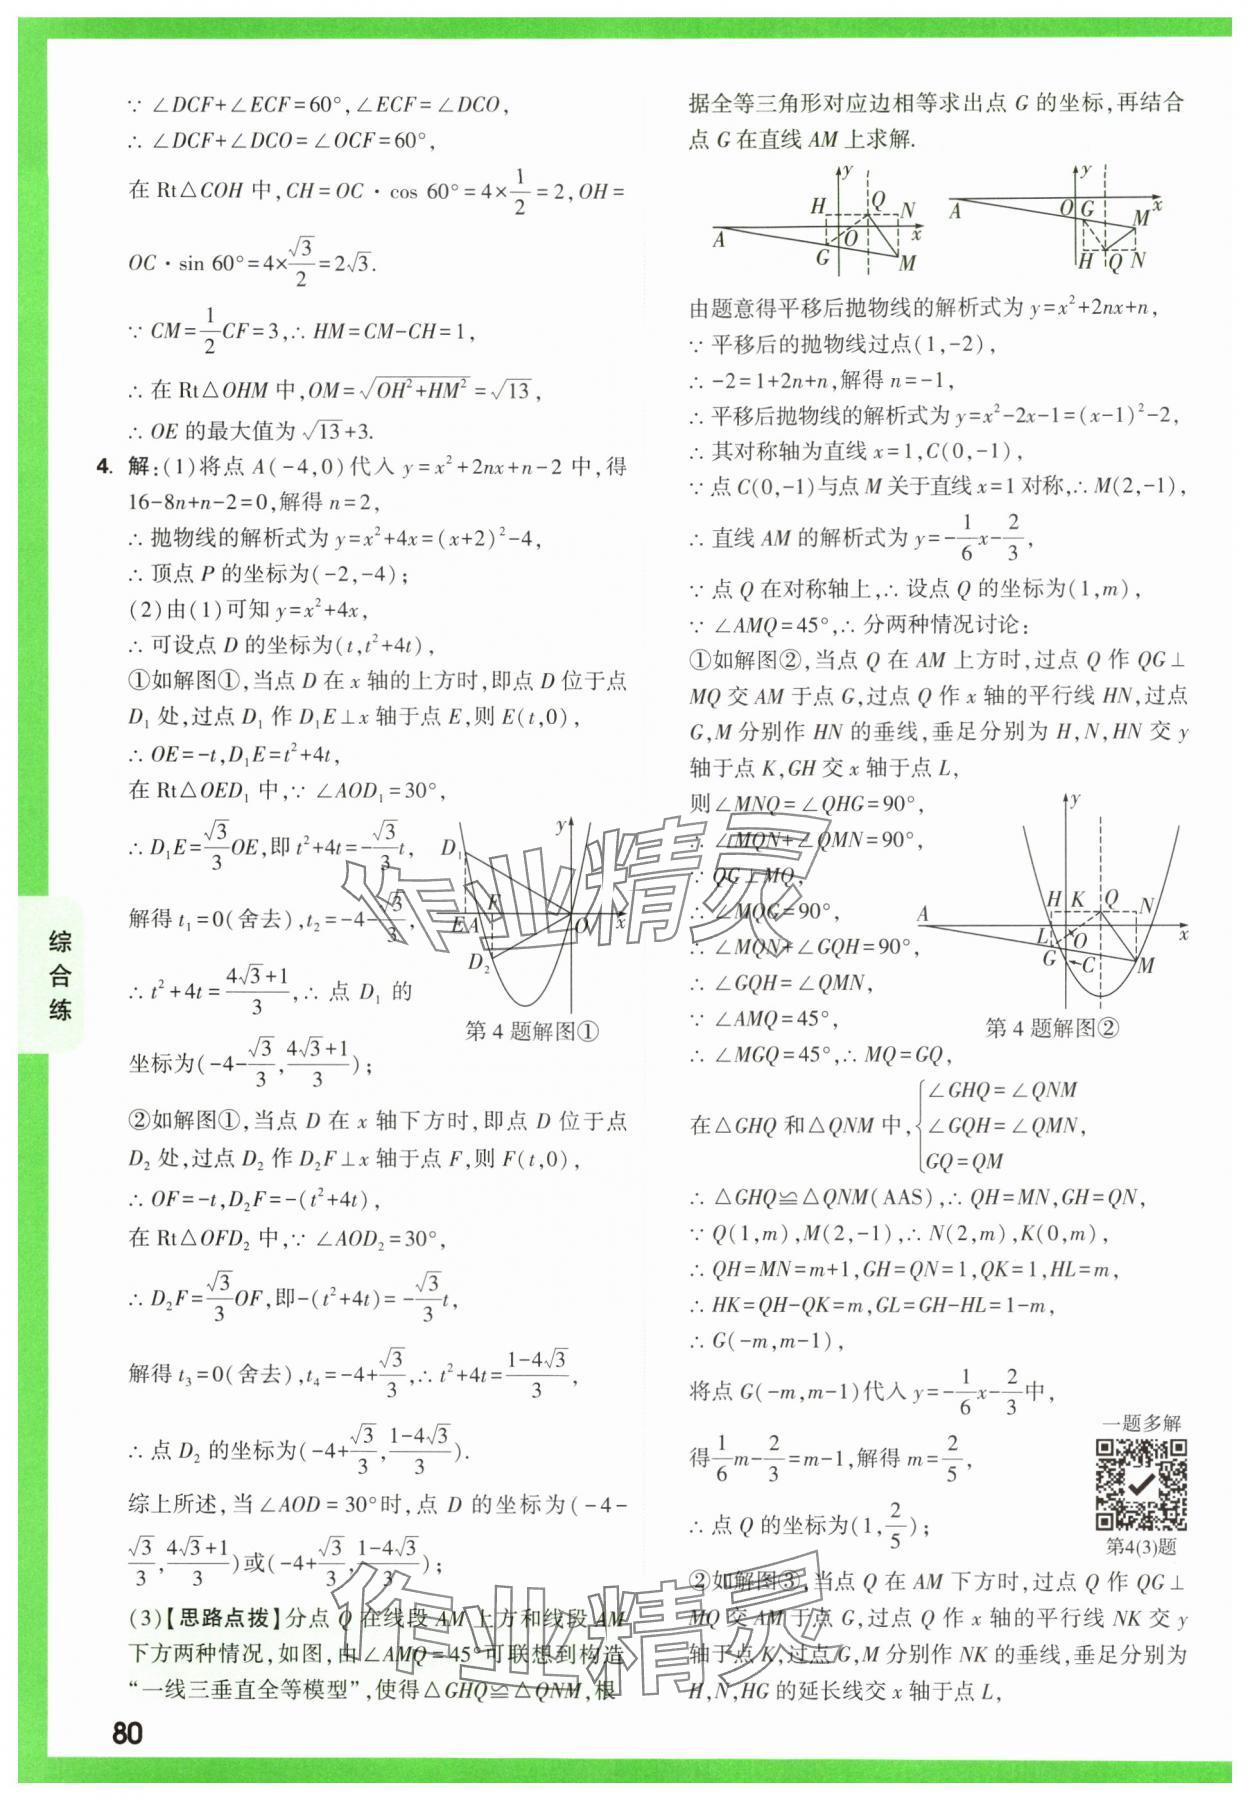 ∵ ∠DCF+∠ECF=60°,∠ECF=∠DCO,
∴ ∠DCF+∠DCO=∠OCF=60°,
在 Rt△COH 中,CH=OC·cos 60°=4×1/2=2,OH=
OC·sin 60°=4×√3/2=2√3.
∵ CM=1/2CF=3,∴ HM=CM-CH=1,
∴ 在 Rt△OHM 中,OM=√(OH²+HM²)=√13,
∴ OE 的最大值为 √13+3.
4. 解:(1)将点 A(-4,0)代入 y=x²+2nx+n-2 中,得
16-8n+n-2=0,解得 n=2,
∴ 抛物线的解析式为 y=x²+4x=(x+2)²-4,
∴ 顶点 P 的坐标为(-2,-4);
(2)由(1)可知 y=x²+4x,
∴ 可设点 D 的坐标为(t,t²+4t),
①如解图①,当点 D 在 x 轴的上方时,即点 D 位于点
D₁ 处,过点 D₁ 作 D₁E⊥x 轴于点 E,则 E(t,0),
∴ OE=-t,D₁E=t²+4t,
在 Rt△OED₁ 中,∵ ∠AOD₁=30°,
∴ D₁E=√3/3OE,即 t²+4t=-√3/3t,
解得 t₁=0(舍去),t₂=-4-√3/3,
∴ t²+4t=(4√3+1)/3,∴ 点 D₁ 的
坐标为(-4-√3/3,(4√3+1)/3);
y
D₁
E
A
F
O
x
D₂
第 4 题解图①
②如解图①,当点 D 在 x 轴下方时,即点 D 位于点
D₂ 处,过点 D₂ 作 D₂F⊥x 轴于点 F,则 F(t,0),
∴ OF=-t,D₂F=-(t²+4t),
在 Rt△OFD₂ 中,∵ ∠AOD₂=30°,
∴ D₂F=√3/3OF,即-(t²+4t)=-√3/3t,
解得 t₃=0(舍去),t₄=-4+√3/3,∴ t²+4t=(1-4√3)/3,
∴ 点 D₂ 的坐标为(-4+√3/3,(1-4√3)/3).
综上所述,当∠AOD=30°时,点 D 的坐标为(-4-
√3/3,(4√3+1)/3)或(-4+√3/3,(1-4√3)/3);
(3)【思路点拨】分点 Q 在线段 AM 上方和线段 AM
下方两种情况,如图,由∠AMQ=45°可联想到构造
“一线三垂直全等模型”,使得△GHQ≌△QNM,根
据全等三角形对应边相等求出点 G 的坐标,再结合
点 G 在直线 AM 上求解.
y
H
Q
N
A
O
x
G
M
y
A
O
G
x
M
H
Q
N
由题意得平移后抛物线的解析式为 y=x²+2nx+n,
∵ 平移后的抛物线过点(1,-2),
∴ -2=1+2n+n,解得 n=-1,
∴ 平移后抛物线的解析式为 y=x²-2x-1=(x-1)²-2,
∴ 其对称轴为直线 x=1,C(0,-1),
∵ 点 C(0,-1)与点 M 关于直线 x=1 对称,∴ M(2,-1),
∴ 直线 AM 的解析式为 y=-1/6x-2/3,
∵ 点 Q 在对称轴上,∴ 设点 Q 的坐标为(1,m),
∵ ∠AMQ=45°,∴ 分两种情况讨论:
①如解图②,当点 Q 在 AM 上方时,过点 Q 作 QG⊥
MQ 交 AM 于点 G,过点 Q 作 x 轴的平行线 HN,过点
G,M 分别作 HN 的垂线,垂足分别为 H,N,HN 交 y
轴于点 K,GH 交 x 轴于点 L,
则∠MNQ=∠QHG=90°,
∴ ∠MQN+∠QMN=90°,
∵ QG⊥MQ,
∴ ∠MQG=90°,
∴ ∠MQN+∠GQH=90°,
∴ ∠GQH=∠QMN,
∵ ∠AMQ=45°,
∴ ∠MGQ=45°,∴ MQ=GQ,
y
H
K
Q
N
A
L
O
x
G
C
M
第 4 题解图②
在△GHQ 和△QNM 中,{∠GHQ=∠QNM
∠GQH=∠QMN,
GQ=QM
∴ △GHQ≌△QNM(AAS),∴ QH=MN,GH=QN,
∵ Q(1,m),M(2,-1),∴ N(2,m),K(0,m),
∴ QH=MN=m+1,GH=QN=1,QK=1,HL=m,
∴ HK=QH-QK=m,GL=GH-HL=1-m,
∴ G(-m,m-1),
将点 G(-m,m-1)代入 y=-1/6x-2/3中,
得1/6m-2/3=m-1,解得 m=2/5,
∴ 点 Q 的坐标为(1,2/5);
一题多解
第4(3)题
②如解图③,当点 Q 在 AM 下方时,过点 Q 作 QG⊥
MQ 交 AM 于点 G,过点 Q 作 x 轴的平行线 NK 交 y
轴于点 K,过点 G,M 分别作 NK 的垂线,垂足分别为
H,N,HG 的延长线交 x 轴于点 L,
综合练
80
作业精灵
作业精灵